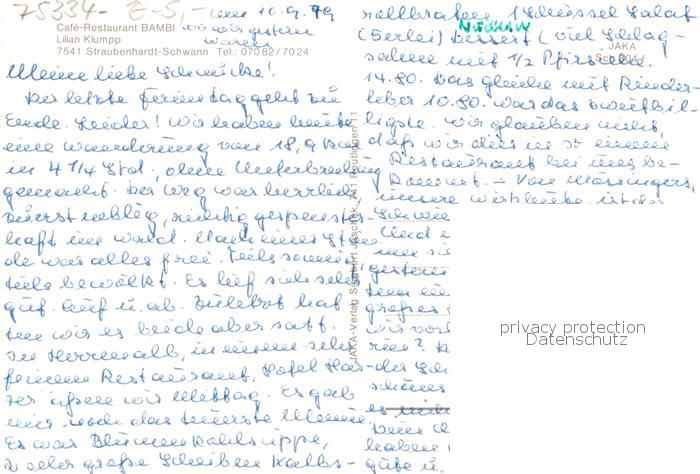 75334- E-5,-
am 10.9.79
Café-Restaurant BAMBI
wo wir gestern
Lilian Klumpp
waren
7541 Straubenhardt-Schwann Tel.: 07082/7024
Meine liebe Schnücke!
Der letzte Ferientag geht zu
Ende. Leider! Wir haben heute
eine Wanderung von 18,9 km
in 4 1/4 Std., ohne Unterbrechung
gemacht. Der Weg war herrlich
zuerst neblig, richtig gespenster
haft im Wald. Nach einer Stun
de war alles frei. Teils sonnig
teils bewölkt. Es lief sich sehr
gut. Auf u. ab. Zuletzt hat
ten wir es beide aber satt.
In Herrenalb, in einem sehr
feinem Restaurant, Hotel
assen wir Mittag. Es gab
nur noch das teuerste Menü
Es war Blumenkohlsuppe,
2 sehr große Scheiben Kalbs-
rollbraten, 1 Schüssel Salat
(5erlei) Nudeln Dessert (viel Schlag-
sahne mit 1/2 Pfirsich.
14.80. Das gleiche mit Rinder-
leber 10.80. war das zweitbil-
ligste. Wir glauben nicht,
daß wir dies in so einem
Restaurant bei uns be-
kommt. – Von
unsere Wirtsleute ist der
Und
gestern
großes
wir
haben
güte u.
JAKA
JAKA-Verlag Siegbert Jaschek, 741 Reutlingen 11
privacy protection
Datenschutz